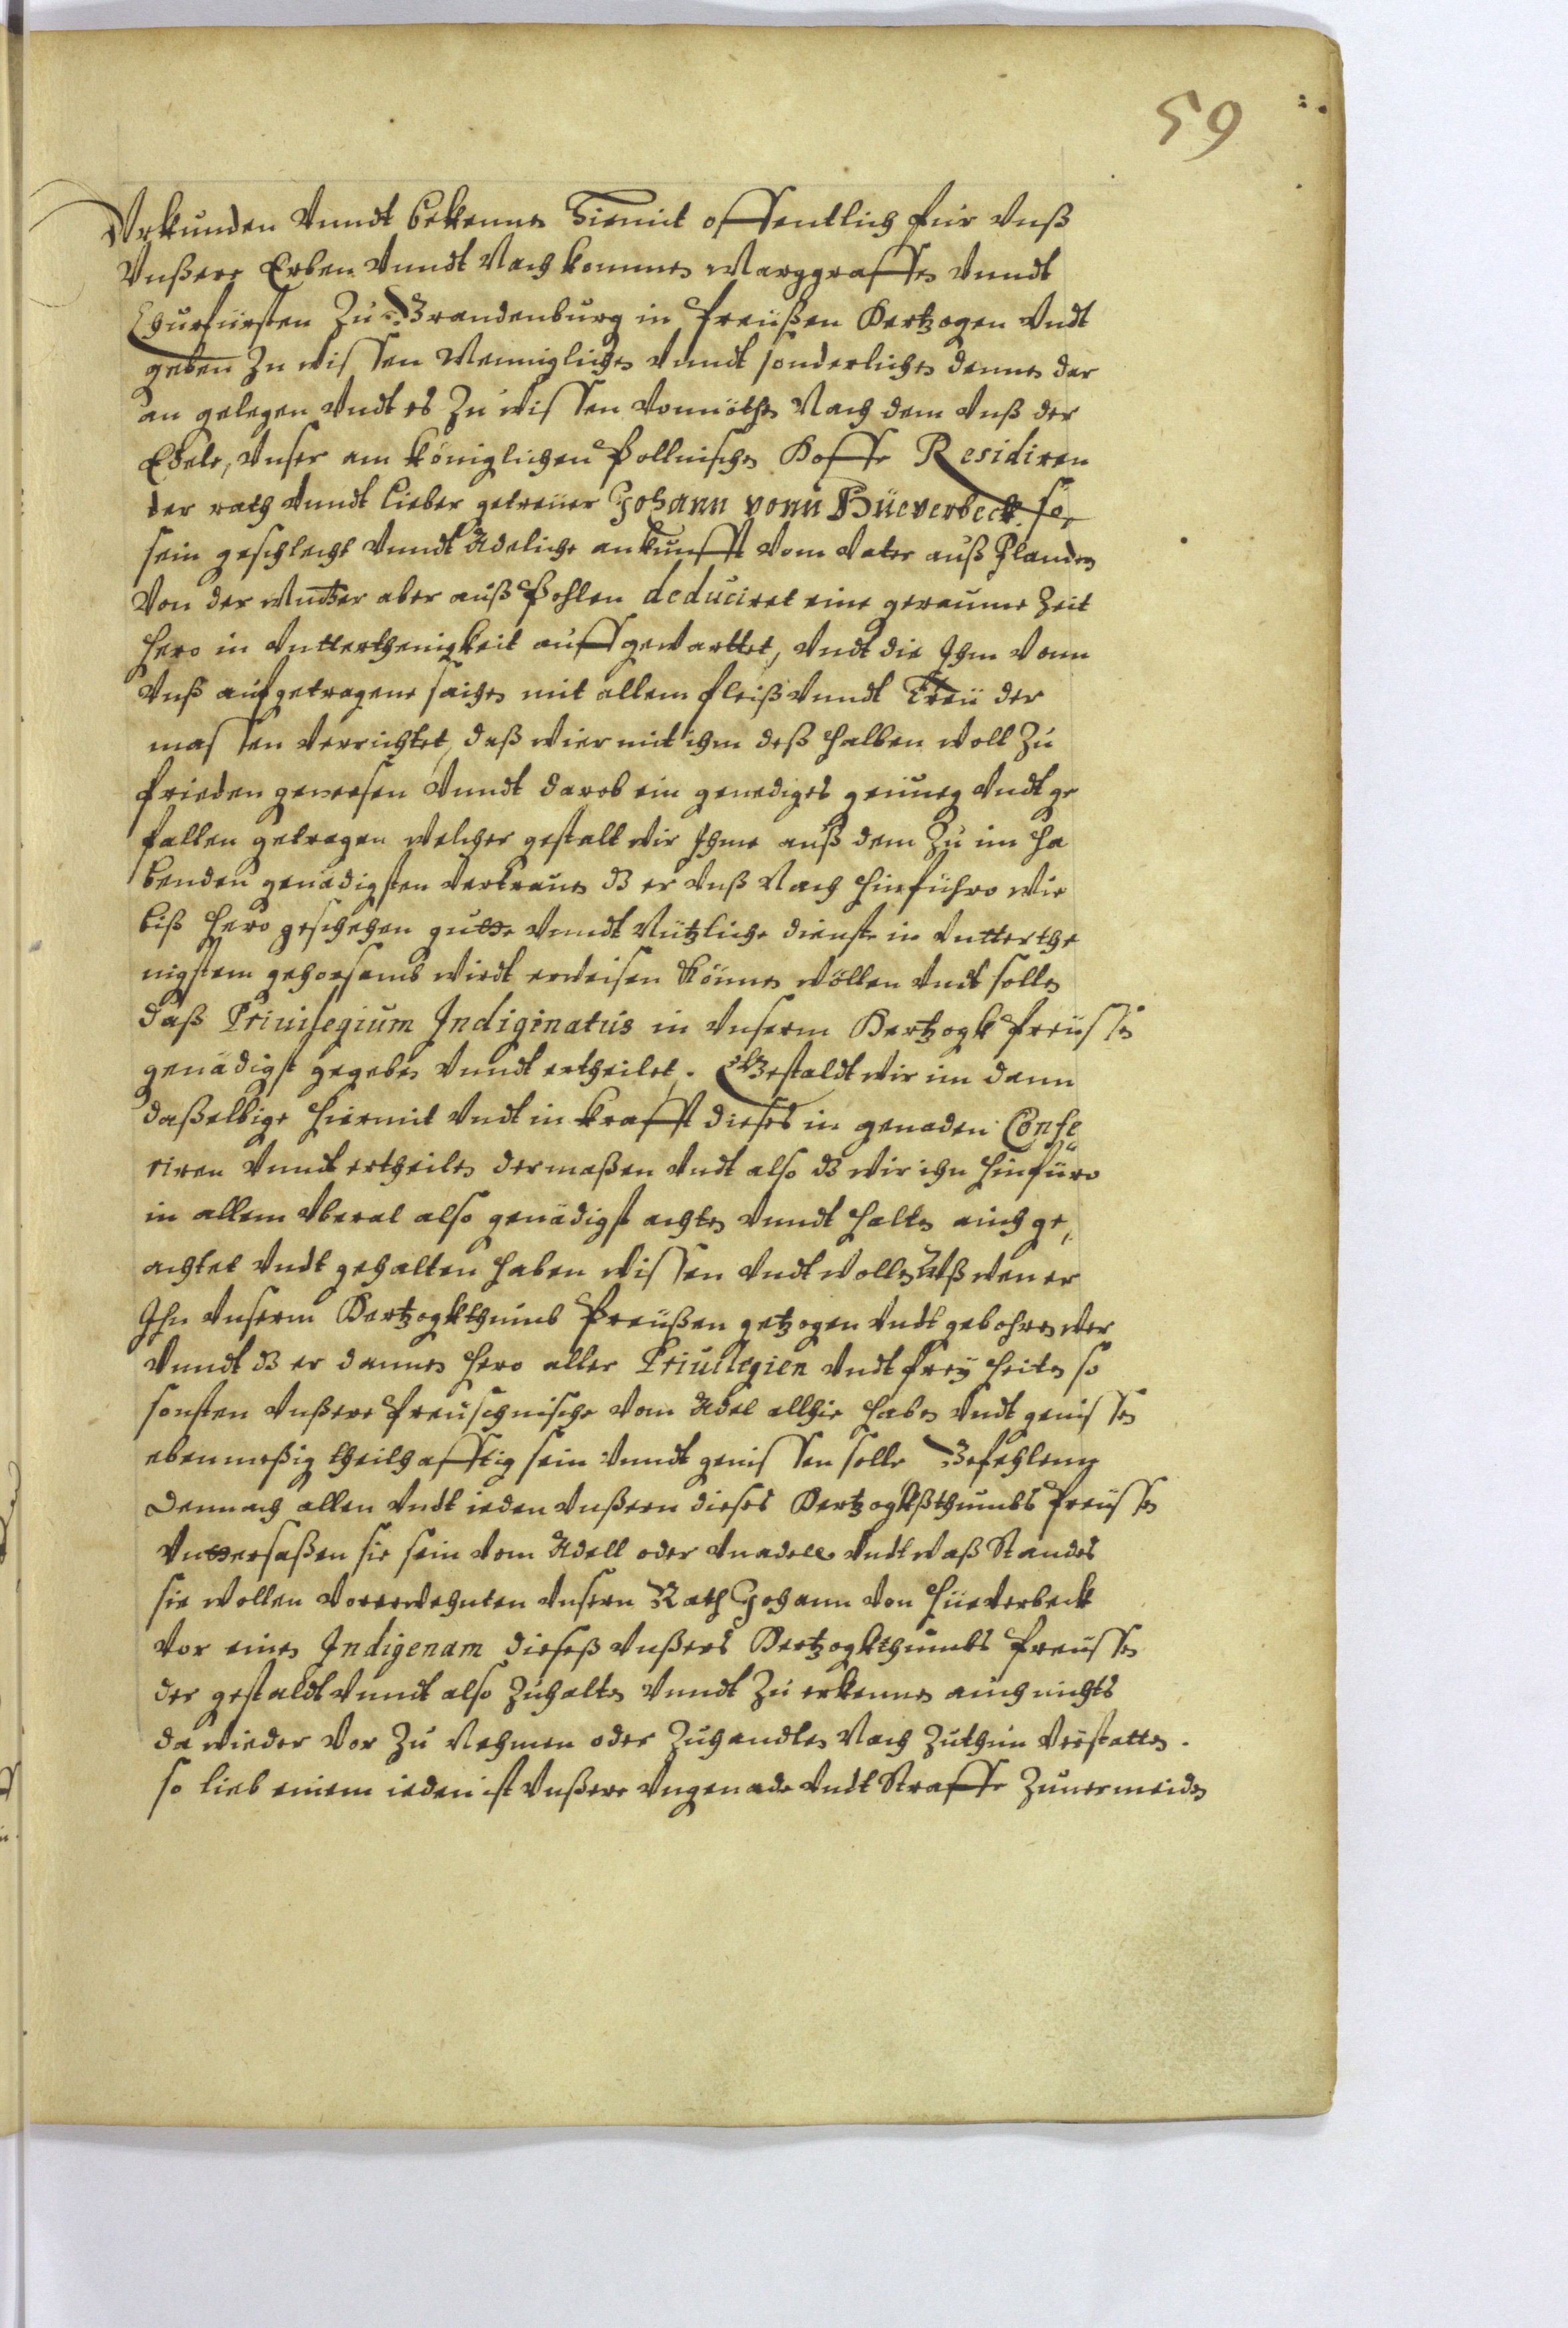 59
Vrkunden Vnndt bekennen Hiemit offentlich für Vnß
Vnßere Erben Vnndt Nachkommen Marggraffen Vnndt
Churfürsten Zu Brandenburg in Preüßen Hertzogen Vndt
geben Zu wissen Menniglichen Vnndt sonderlichen denen dar
an gelegen Vndt es Zu wissen Vonnöthen Nach dem Vnß der
Edele, Vnser am königlichen Pollnischen Hoffe Residiren
der rath Vnndt lieber getreüer Johann vonn Hüeverbeck so
sein geschlecht Vnndt Adeliche ankunfft Vom Vater auß Flandern
Von der Mutter aber auß Pohlen deduciret eine geraume Zeit
hero in Vntterthenigkeit auffgewarttet, Vndt die Ihm Vonn
Vnß aufgetragene sachen mit allem fleiß Vnndt Treü der
massen Verrichtet, daß wier mit ihm deß halben woll Zu
frieden gewesen Vnndt darob ein genediges genüeg Vndt ge
fallen getragen welcher gestalt wir Ihme auß dem Zu im ha
benden genädigsten Vertrauen dz er Vnß Nach hinführo wie
biß hero geschehen gutte Vnndt Nützliche dienste in Vntterthe
nigstem gehorsamb wirdt erweisen können wöllen Vndt sollen
daß Priuilegium Indiginatus in Vnserm Hertzogk Preüssen
genädigst gegeben Vnndt ertheilet. Gestaldt wir im dann
daßelbige hiermit Vndt in krafft dieses in genaden Confe
riren Vnndt ertheilen dermaßen Vndt also dz wir ihn hinfüro
in allem Vberal also genädigst achten Vnndt halten auch ge,
achtet Vndt gehalten haben wissen Vndt wollen Alß wen er
Ihn Vnserm Hertzogkthumb Preüßen getzogen Vndt gebohren wer
Vnndt dz er dannen hero aller Priuilegien Vndt freÿheiten so
sonsten Vnßere Preuschnische Vom Adel allhie haben Vndt genissen
ebenmeßig theilhafftig sein Vnndt genissen solle Befehlenn
Demnach allen Vndt ieden Vnßern dieses Hertzogkßthumbs Preüssen
Vnttersaßen sie sein Vom Adell oder Vnadell Vndt waß Standes
sie wollen Vorerwehnten Vnsern Rath Johann Von Hüeverbeck
Vor einen Indigenam dieseß Vnßers Hertzogkthumbs Preüssen
der gestaldt Vnndt also Zuhalten Vnndt Zu erkennen auch nichts
da wieder Vor Zu Nehmen oder Zuhandlen Nach Zuthun Verstatten.
so lieb einem ieden ist Vnßere Vngenade Vndt Straffe Zuuermeiden